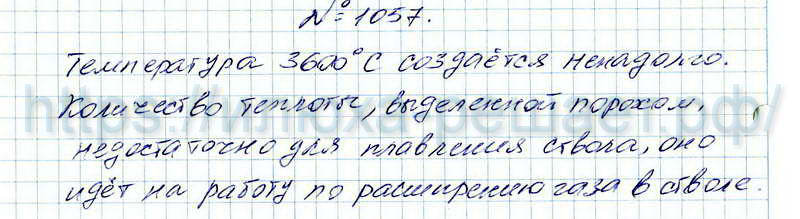 № 1057.
Температура 3600°С создаётся ненадолго.
Количество теплоты, выделенной порохом,
недостаточно для плавления ствола, оно
идёт на работу по расширению газа в стволе.